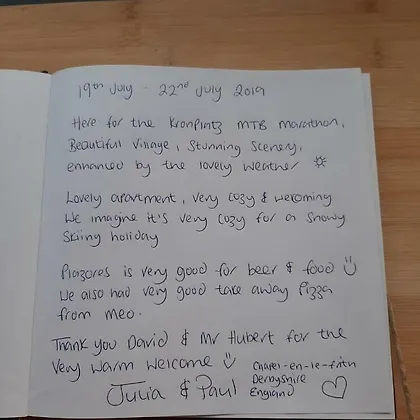 19th July - 22nd July 2019
Here for the Kronplatz MTB marathon,
Beautiful Village, Stunning Scenery,
enhanced by the lovely weather
Lovely apartment, very cozy & welcoming
We imagine it's very cozy for a snowy
Skiing holiday
Plazores is very good for beer & food
We also had very good take away Pizza
from meo.
Thank you David & Mr Hubert for the
Very warm welcome
Julia & Paul
Chapel-en-le-frith
Derbyshire
England